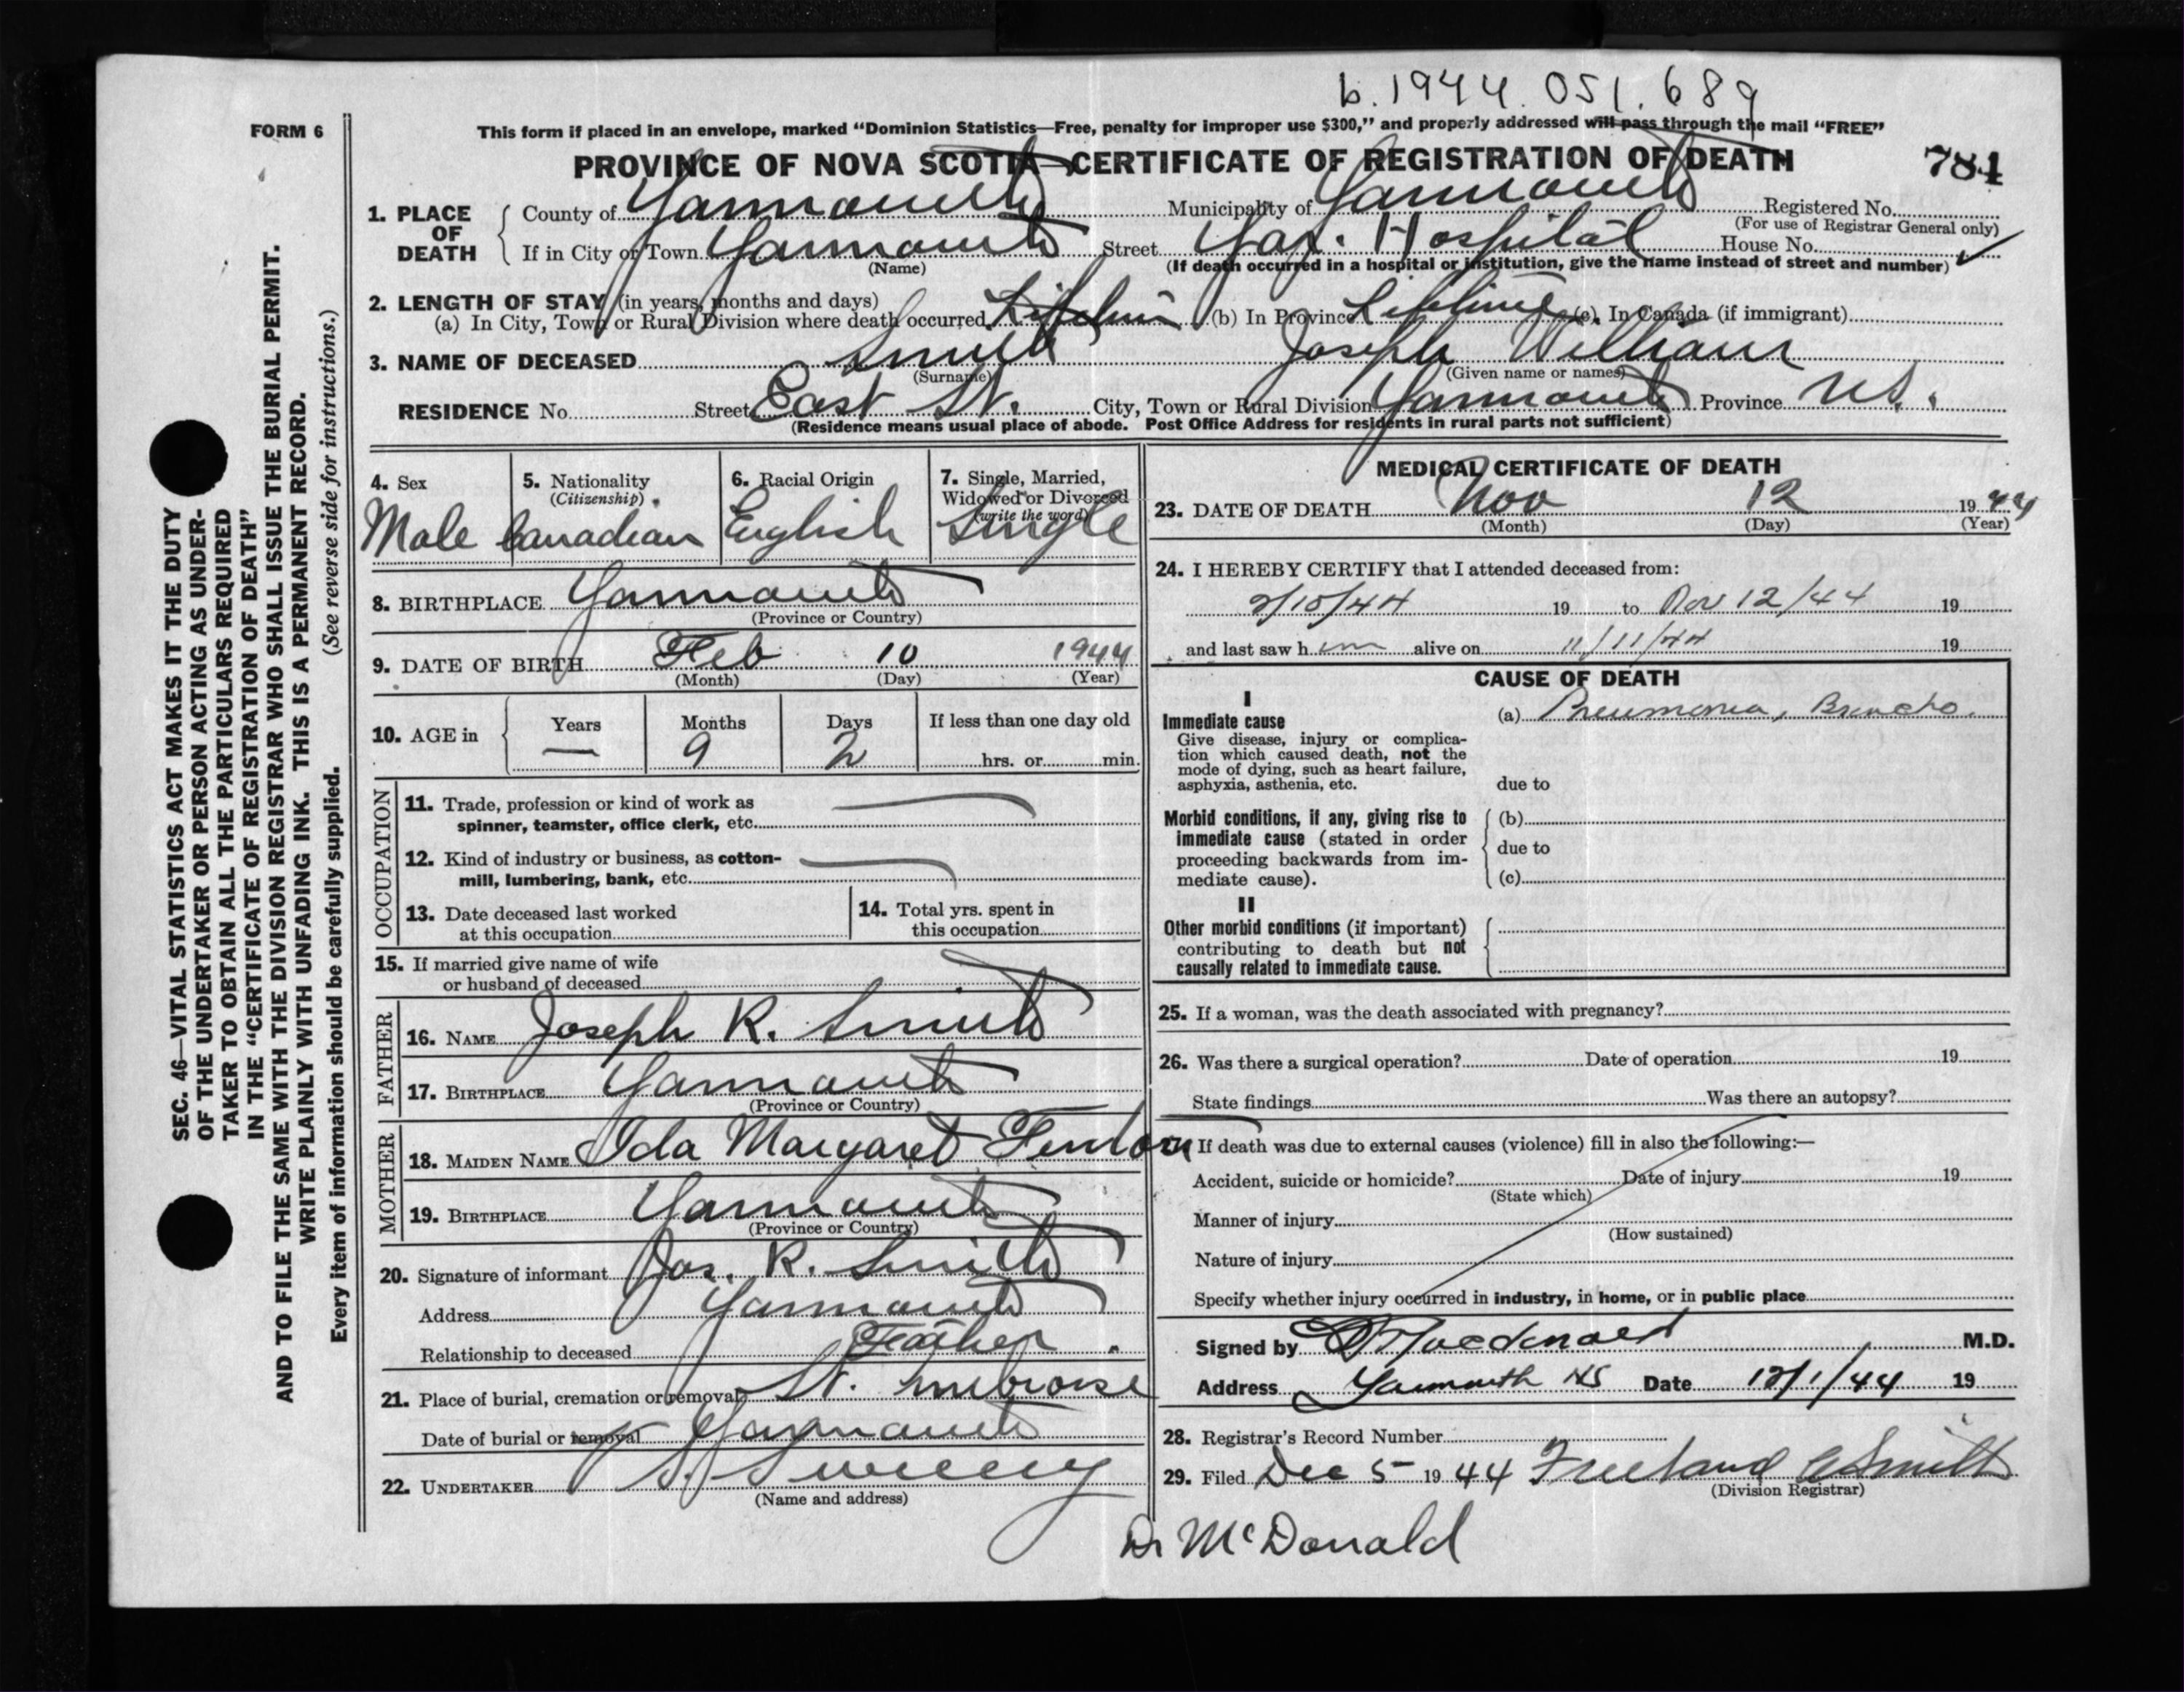 b. 1944. 051. 689
FORM 6
This form if placed in an envelope, marked “Dominion Statistics—Free, penalty for improper use $300,” and properly addressed will pass through the mail “FREE”
PROVINCE OF NOVA SCOTIA—CERTIFICATE OF REGISTRATION OF DEATH
784
1. PLACE OF DEATH
County of Yarmouth Municipality of Yarmouth Registered No.
(For use of Registrar General only)
If in City or Town Yarmouth Street Yar. Hospital House No.
(Name) (If death occurred in a hospital or institution, give the name instead of street and number) ✓
2. LENGTH OF STAY (in years, months and days)
(a) In City, Town or Rural Division where death occurred Lifetime (b) In Province Lifetime (c) In Canada (if immigrant)
3. NAME OF DECEASED Smith Joseph William
(Surname) (Given name or names)
RESIDENCE No. Street East St. City, Town or Rural Division Yarmouth Province N.S.
(Residence means usual place of abode. Post Office Address for residents in rural parts not sufficient)
4. Sex
Male
5. Nationality
(Citizenship)
Canadian
6. Racial Origin
English
7. Single, Married,
Widowed or Divorced
(write the word)
Single
8. BIRTHPLACE Yarmouth
(Province or Country)
9. DATE OF BIRTH Feb 10 1944
(Month) (Day) (Year)
10. AGE in
Years Months Days If less than one day old
— 9 2 hrs. or min.
OCCUPATION
11. Trade, profession or kind of work as
spinner, teamster, office clerk, etc.
12. Kind of industry or business, as cotton-
mill, lumbering, bank, etc.
13. Date deceased last worked
at this occupation
14. Total yrs. spent in
this occupation
15. If married give name of wife
or husband of deceased
FATHER
16. NAME Joseph R. Smith
17. BIRTHPLACE Yarmouth
(Province or Country)
MOTHER
18. MAIDEN NAME Ida Margaret Fenton
19. BIRTHPLACE Yarmouth
(Province or Country)
20. Signature of informant Jos. R. Smith
Address Yarmouth
Relationship to deceased Father
21. Place of burial, cremation or removal St. Ambrose
Date of burial or removal Yarmouth
22. UNDERTAKER Sweeny
(Name and address)
MEDICAL CERTIFICATE OF DEATH
23. DATE OF DEATH Nov 12 1944
(Month) (Day) (Year)
24. I HEREBY CERTIFY that I attended deceased from:
2/10/44 19 to Nov 12/44 19
and last saw him alive on 11/11/44 19
CAUSE OF DEATH
I
Immediate cause
Give disease, injury or complica-
tion which caused death, not the
mode of dying, such as heart failure,
asphyxia, asthenia, etc.
(a) Pneumonia, Broncho.
due to
Morbid conditions, if any, giving rise to
immediate cause (stated in order
proceeding backwards from im-
mediate cause).
(b)
due to
(c)
II
Other morbid conditions (if important)
contributing to death but not
causally related to immediate cause.
25. If a woman, was the death associated with pregnancy?
26. Was there a surgical operation? Date of operation 19
State findings Was there an autopsy?
If death was due to external causes (violence) fill in also the following:—
Accident, suicide or homicide? Date of injury 19
(State which)
Manner of injury
(How sustained)
Nature of injury
Specify whether injury occurred in industry, in home, or in public place
Signed by Macdonald M.D.
Address Yarmouth NS Date 12/1/44 19
28. Registrar's Record Number
29. Filed Dec 5 1944 Smith
(Division Registrar)
Dr McDonald
SEC. 46—VITAL STATISTICS ACT MAKES IT THE DUTY
OF THE UNDERTAKER OR PERSON ACTING AS UNDER-
TAKER TO OBTAIN ALL THE PARTICULARS REQUIRED
IN THE “CERTIFICATE OF REGISTRATION OF DEATH”
AND TO FILE THE SAME WITH THE DIVISION REGISTRAR WHO SHALL ISSUE THE BURIAL PERMIT.
WRITE PLAINLY WITH UNFADING INK. THIS IS A PERMANENT RECORD.
Every item of information should be carefully supplied. (See reverse side for instructions.)